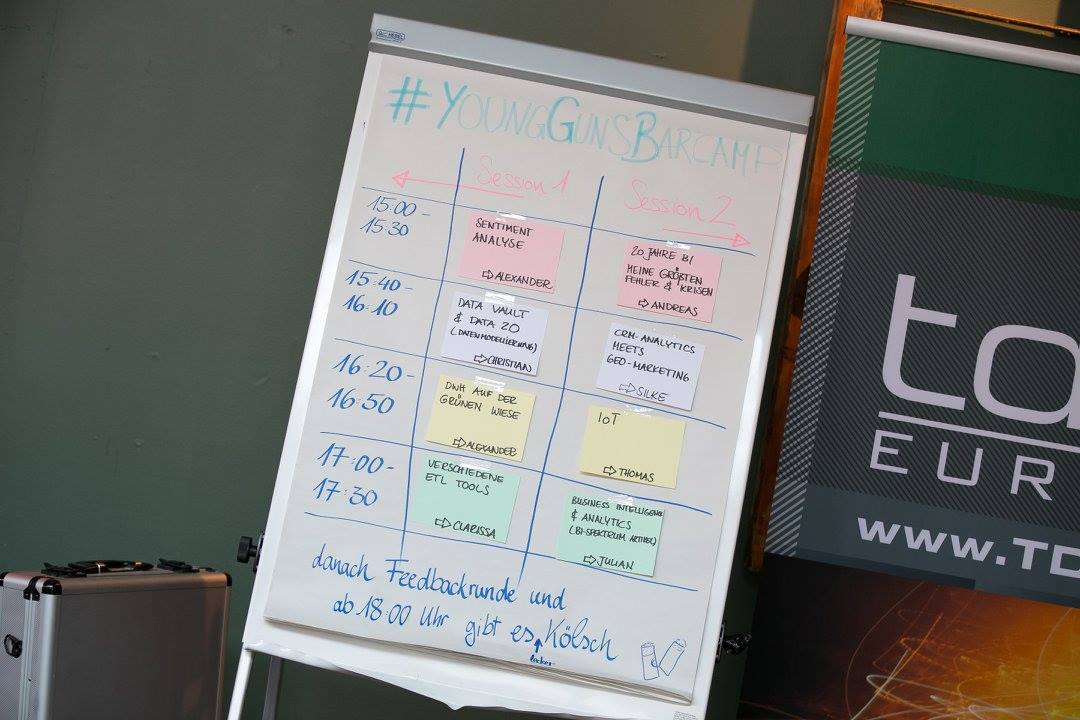 #YOUNGGUNSBARCAMP
Session 1
Session 2
15:00 -
15:30
SENTIMENT
ANALYSE
⇨ALEXANDER
20 JAHRE BI
MEINE GRÖßTEN
FEHLER & KRISEN
⇨ANDREAS
15:40-
16:10
DATA VAULT
& DATA 2.0
(DATENMODELLIERUNG)
⇨CHRISTIAN
CRM-ANALYTICS
MEETS
GEO-MARKETING
⇨SILKE
16:20-
16:50
DWH AUF DER
GRÜNEN WIESE
⇨ALEXANDER
IoT
⇨THOMAS
17:00-
17:30
VERSCHIEDENE
ETL TOOLS
⇨CLARISSA
BUSINESS INTELLIGENCE
& ANALYTICS
(BI-SPEKTRUM ARTIKEL)
⇨JULIAN
danach Feedbackrunde und
ab 18:00 Uhr gibt es Kölsch
lecker
EUR
www.TD